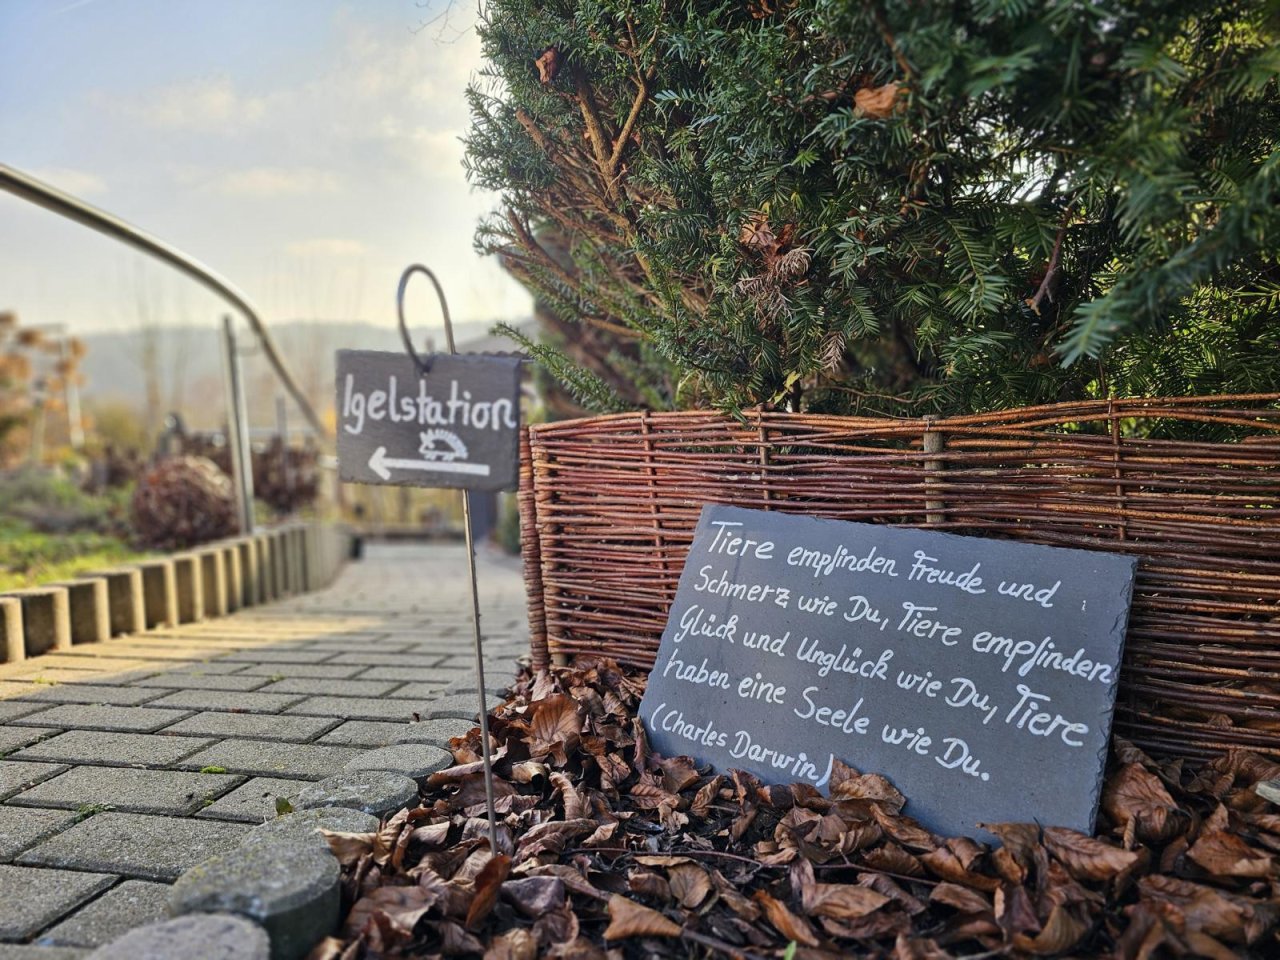 Igelstation
Tiere empfinden Freude und
Schmerz wie Du, Tiere empfinden
Glück und Unglück wie Du, Tiere
haben eine Seele wie Du.
(Charles Darwin)